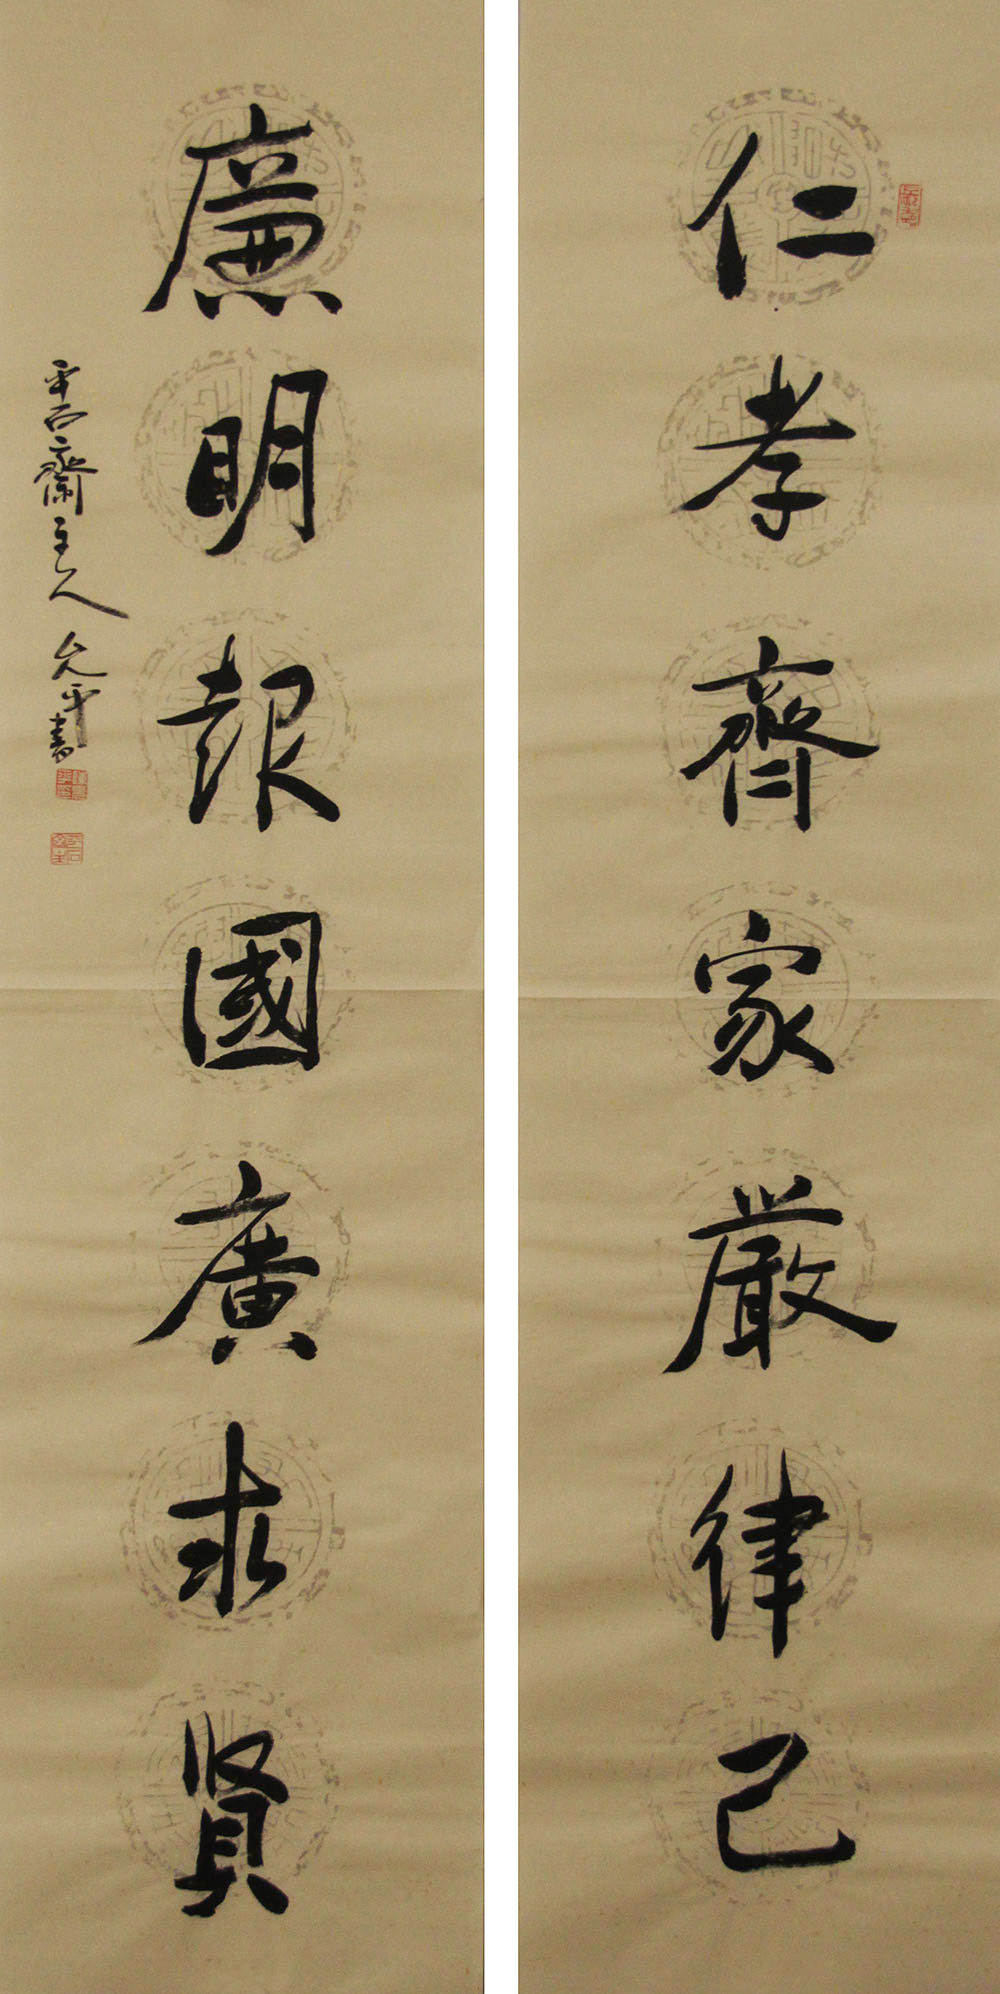 仁孝齊家嚴律己
廉明報國廣求賢
平石齋主人允平書